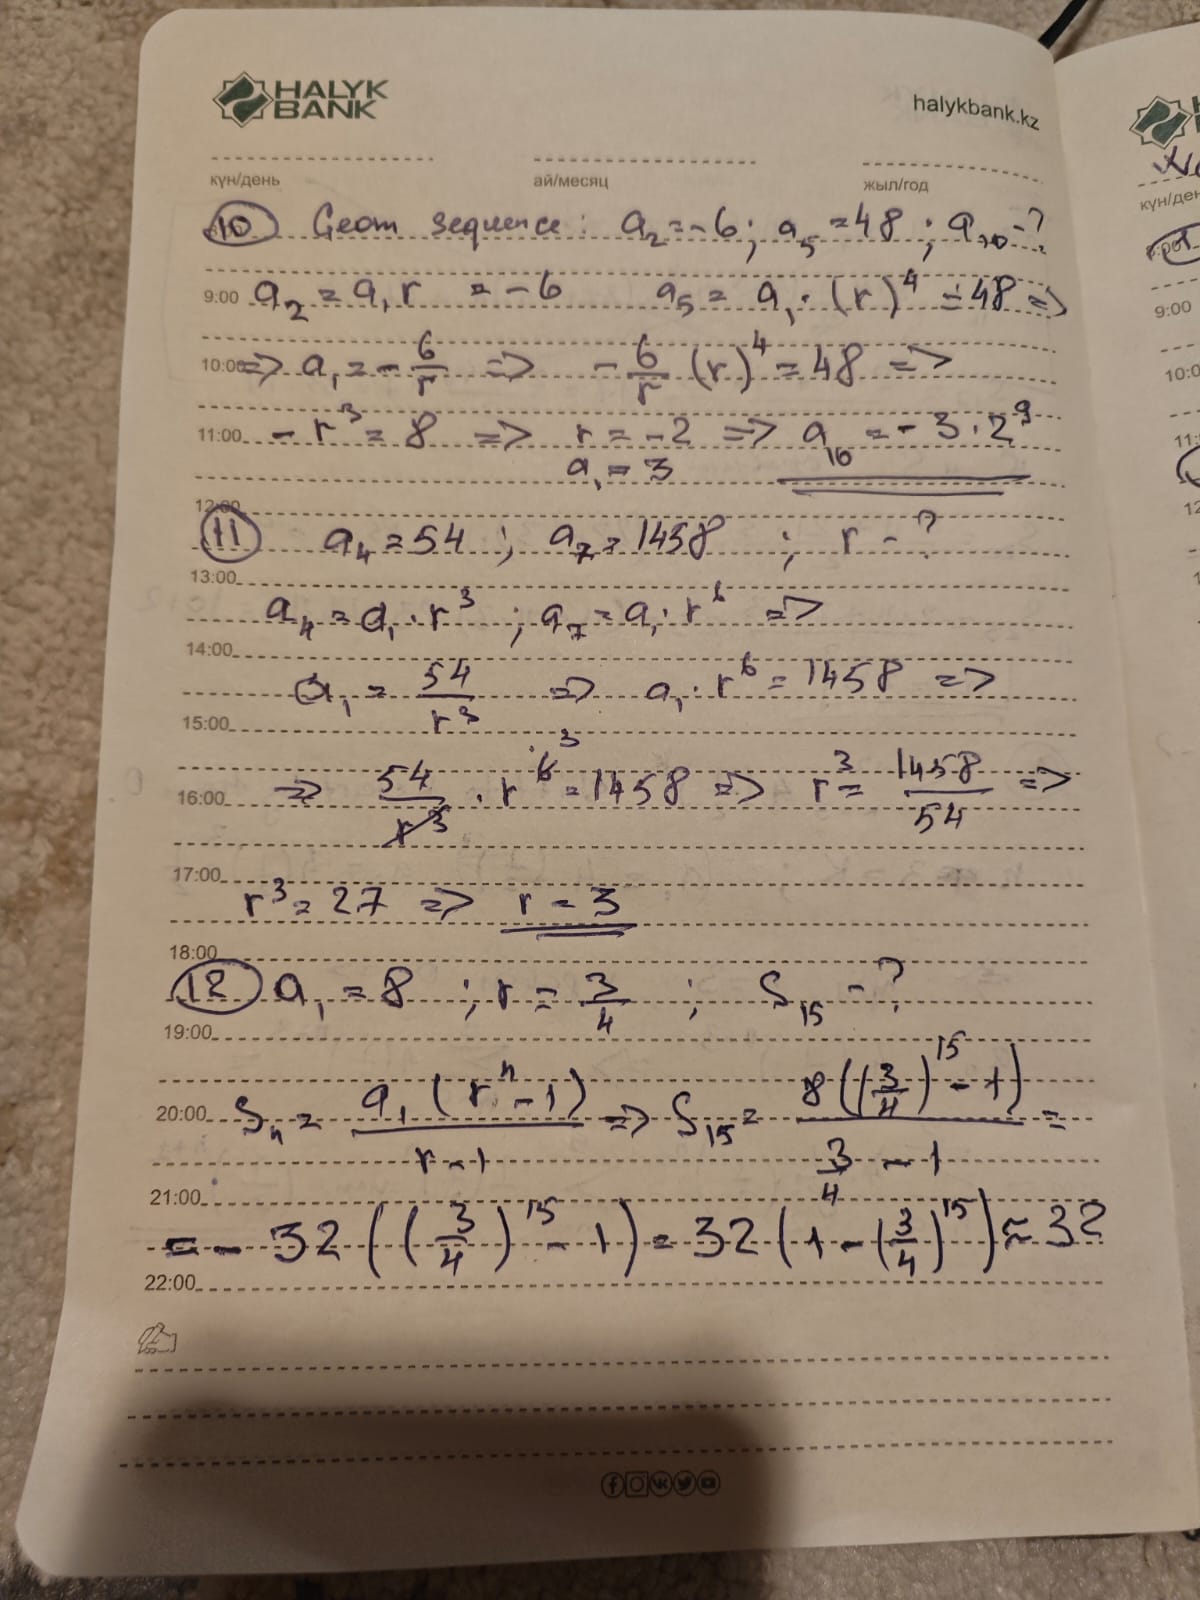 HALYK
BANK
halykbank.kz
күн/день ай/месяц жыл/год
10 Geom sequence: a₂=-6; a₅=48; a₁₀-?
9:00 a₂ = a₁r = -6 a₅ = a₁·(r)⁴ = 48 =>
10:00 => a₁ = -6/r => -6/r (r)⁴ = 48 =>
11:00 -r³ = 8 => r = -2 => a₁₀ = -3·2⁹
a₁ = 3
12:00
11 a₄ = 54 ; a₇ = 1458 ; r - ?
13:00
a₄ = a₁·r³ ; a₇ = a₁·r⁶ =>
14:00
a₁ = 54/r³ => a₁·r⁶ = 1458 =>
15:00
16:00 => 54/r³ · r⁶ ³ = 1458 => r³ = 1458/54 =>
17:00
r³ = 27 => r = 3
18:00
12 a₁ = 8 ; r = 3/4 ; S₁₅ - ?
19:00
20:00 Sₙ = a₁(rⁿ - 1)/(r - 1) => S₁₅ = 8((3/4)¹⁵ - 1)/(3/4 - 1) =
21:00
= - 32((3/4)¹⁵ - 1) = 32(1 - (3/4)¹⁵) ≈ 32
22:00
күн/ден
9:00
10:0
11:
12